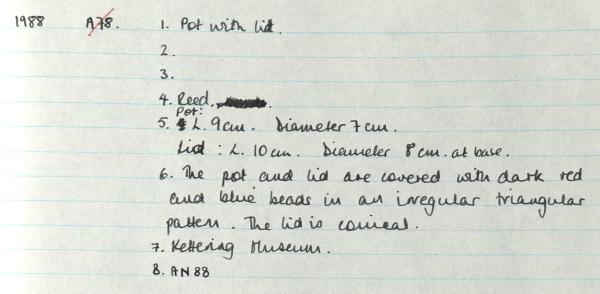 1988 A78. 1. Pot with lid.
2.
3.
4. Reed.
Pot:
5. L. 9cm. Diameter 7cm.
Lid : L. 10cm. Diameter 8cm. at base.
6. The pot and lid are covered with dark red
and blue beads in an irregular triangular
pattern. The lid is conical.
7. Kettering Museum.
8. AN88